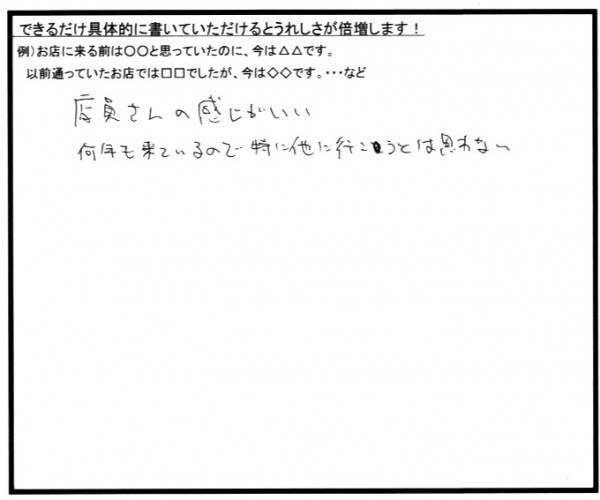 できるだけ具体的に書いていただけるとうれしさが倍増します！
例）お店に来る前は〇〇と思っていたのに、今は△△です。
以前通っていたお店では□□でしたが、今は◇◇です。・・・など
店員さんの感じがいい
何年も来ているので特に他に行こうとは思わない